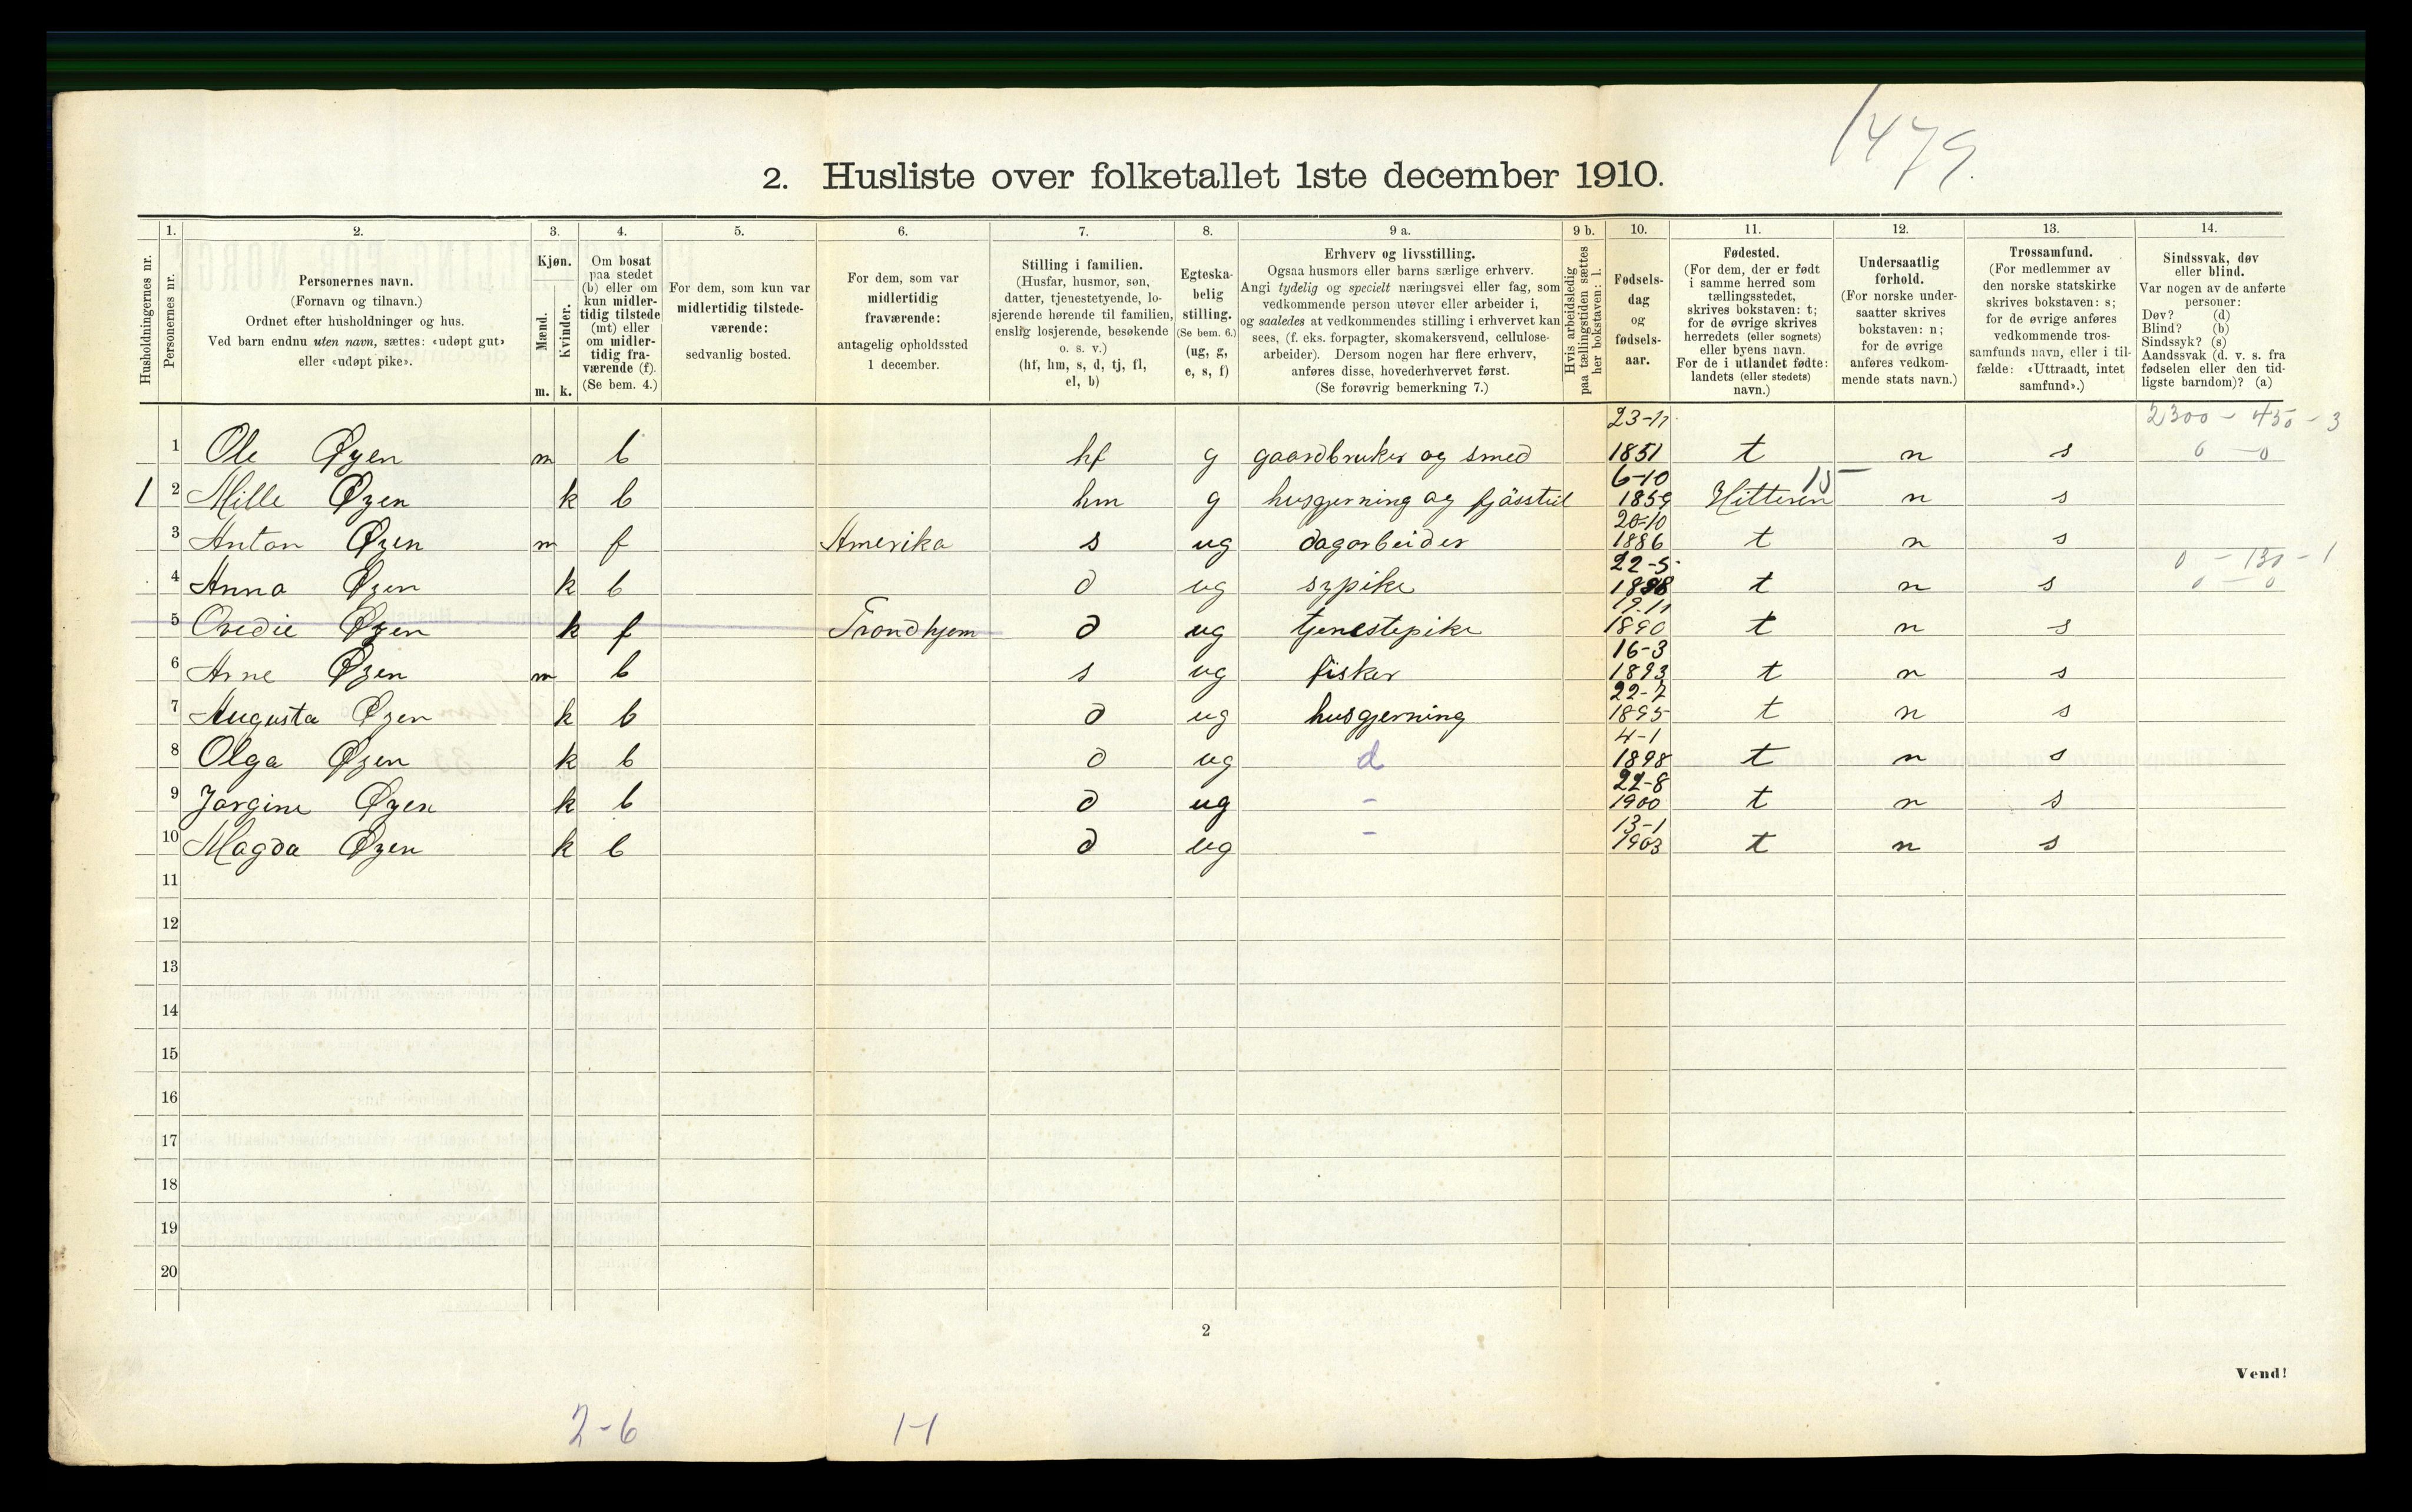 1479.
2. Husliste over folketallet 1ste december 1910.
Husholdningernes nr.
1. Personernes nr.
2. Personernes navn. (Fornavn og tilnavn.) Ordnet efter husholdninger og hus. Ved barn endnu uten navn, sættes: «udøpt gut» eller «udøpt pike».
3. Kjøn. Mænd. m. Kvinder. k.
4. Om bosat paa stedet (b) eller om kun midlertidig tilstede (mt) eller om midlertidig fraværende (f). (Se bem. 4.)
5. For dem, som kun var midlertidig tilstedeværende: sedvanlig bosted.
6. For dem, som var midlertidig fraværende: antagelig opholdssted 1 december.
7. Stilling i familien. (Husfar, husmor, søn, datter, tjenestetyende, losjerende hørende til familien, enslig losjerende, besøkende o. s. v.) (hf, hm, s, d, tj, fl, el, b)
8. Egteskabelig stilling. (Se bem. 6.) (ug, g, e, s, f)
9 a. Erhverv og livsstilling. Ogsaa husmors eller barns særlige erhverv. Angi tydelig og specielt næringsvei eller fag, som vedkommende person utøver eller arbeider i, og saaledes at vedkommendes stilling i erhvervet kan sees, (f. eks. forpagter, skomakersvend, cellulosearbeider). Dersom nogen har flere erhverv, anføres disse, hovederhvervet først. (Se forøvrig bemerkning 7.)
9 b. Hvis arbeidsledig paa tællingstiden sættes her bokstaven: l.
10. Fødselsdag og fødselsaar.
11. Fødested. (For dem, der er født i samme herred som tællingsstedet, skrives bokstaven: t; for de øvrige skrives herredets (eller sognets) eller byens navn. For de i utlandet fødte: landets (eller stedets) navn.)
12. Undersaatlig forhold. (For norske undersaatter skrives bokstaven: n; for de øvrige anføres vedkommende stats navn.)
13. Trossamfund. (For medlemmer av den norske statskirke skrives bokstaven: s; for de øvrige anføres vedkommende trossamfunds navn, eller i tilfælde: «Uttraadt, intet samfund».)
14. Sindssvak, døv eller blind. Var nogen av de anførte personer: Døv? (d) Blind? (b) Sindssyk? (s) Aandssvak (d. v. s. fra fødselen eller den tidligste barndom)? (a)
2300 - 450 - 3
1 Ole Øyen m b hf g gaardbruker og smed 23-11 1851 t n s 0 - 0
1 2 Mille Øzen k b hm g husgjerning og fjösstel 6-10 1859 Hitteren 15 n s
3 Anton Øzen m f Amerika s ug dagarbeider 20-10 1886 t n s
0 - 130 - 1
4 Anna Øzen k b d ug sypike 22-5 1888 t n s 0 - 0
5 Ovedie Øzen k f Trondhjem d ug tjenestepike 19.11 1890 t n s
6 Arne Øzen m b s ug fisker 16-3 1893 t n s
7 Augusta Øzen k b d ug husgjerning 22-7 1895 t n s
8 Olga Øzen k b d ug d 4-1 1898 t n s
9 Jorgine Øzen k b d ug - 22-8 1900 t n s
10 Magda Øzen k b d ug - 13-1 1903 t n s
11
12
13
14
15
16
17
18
19
20
2
Vend!
2-6 1-1